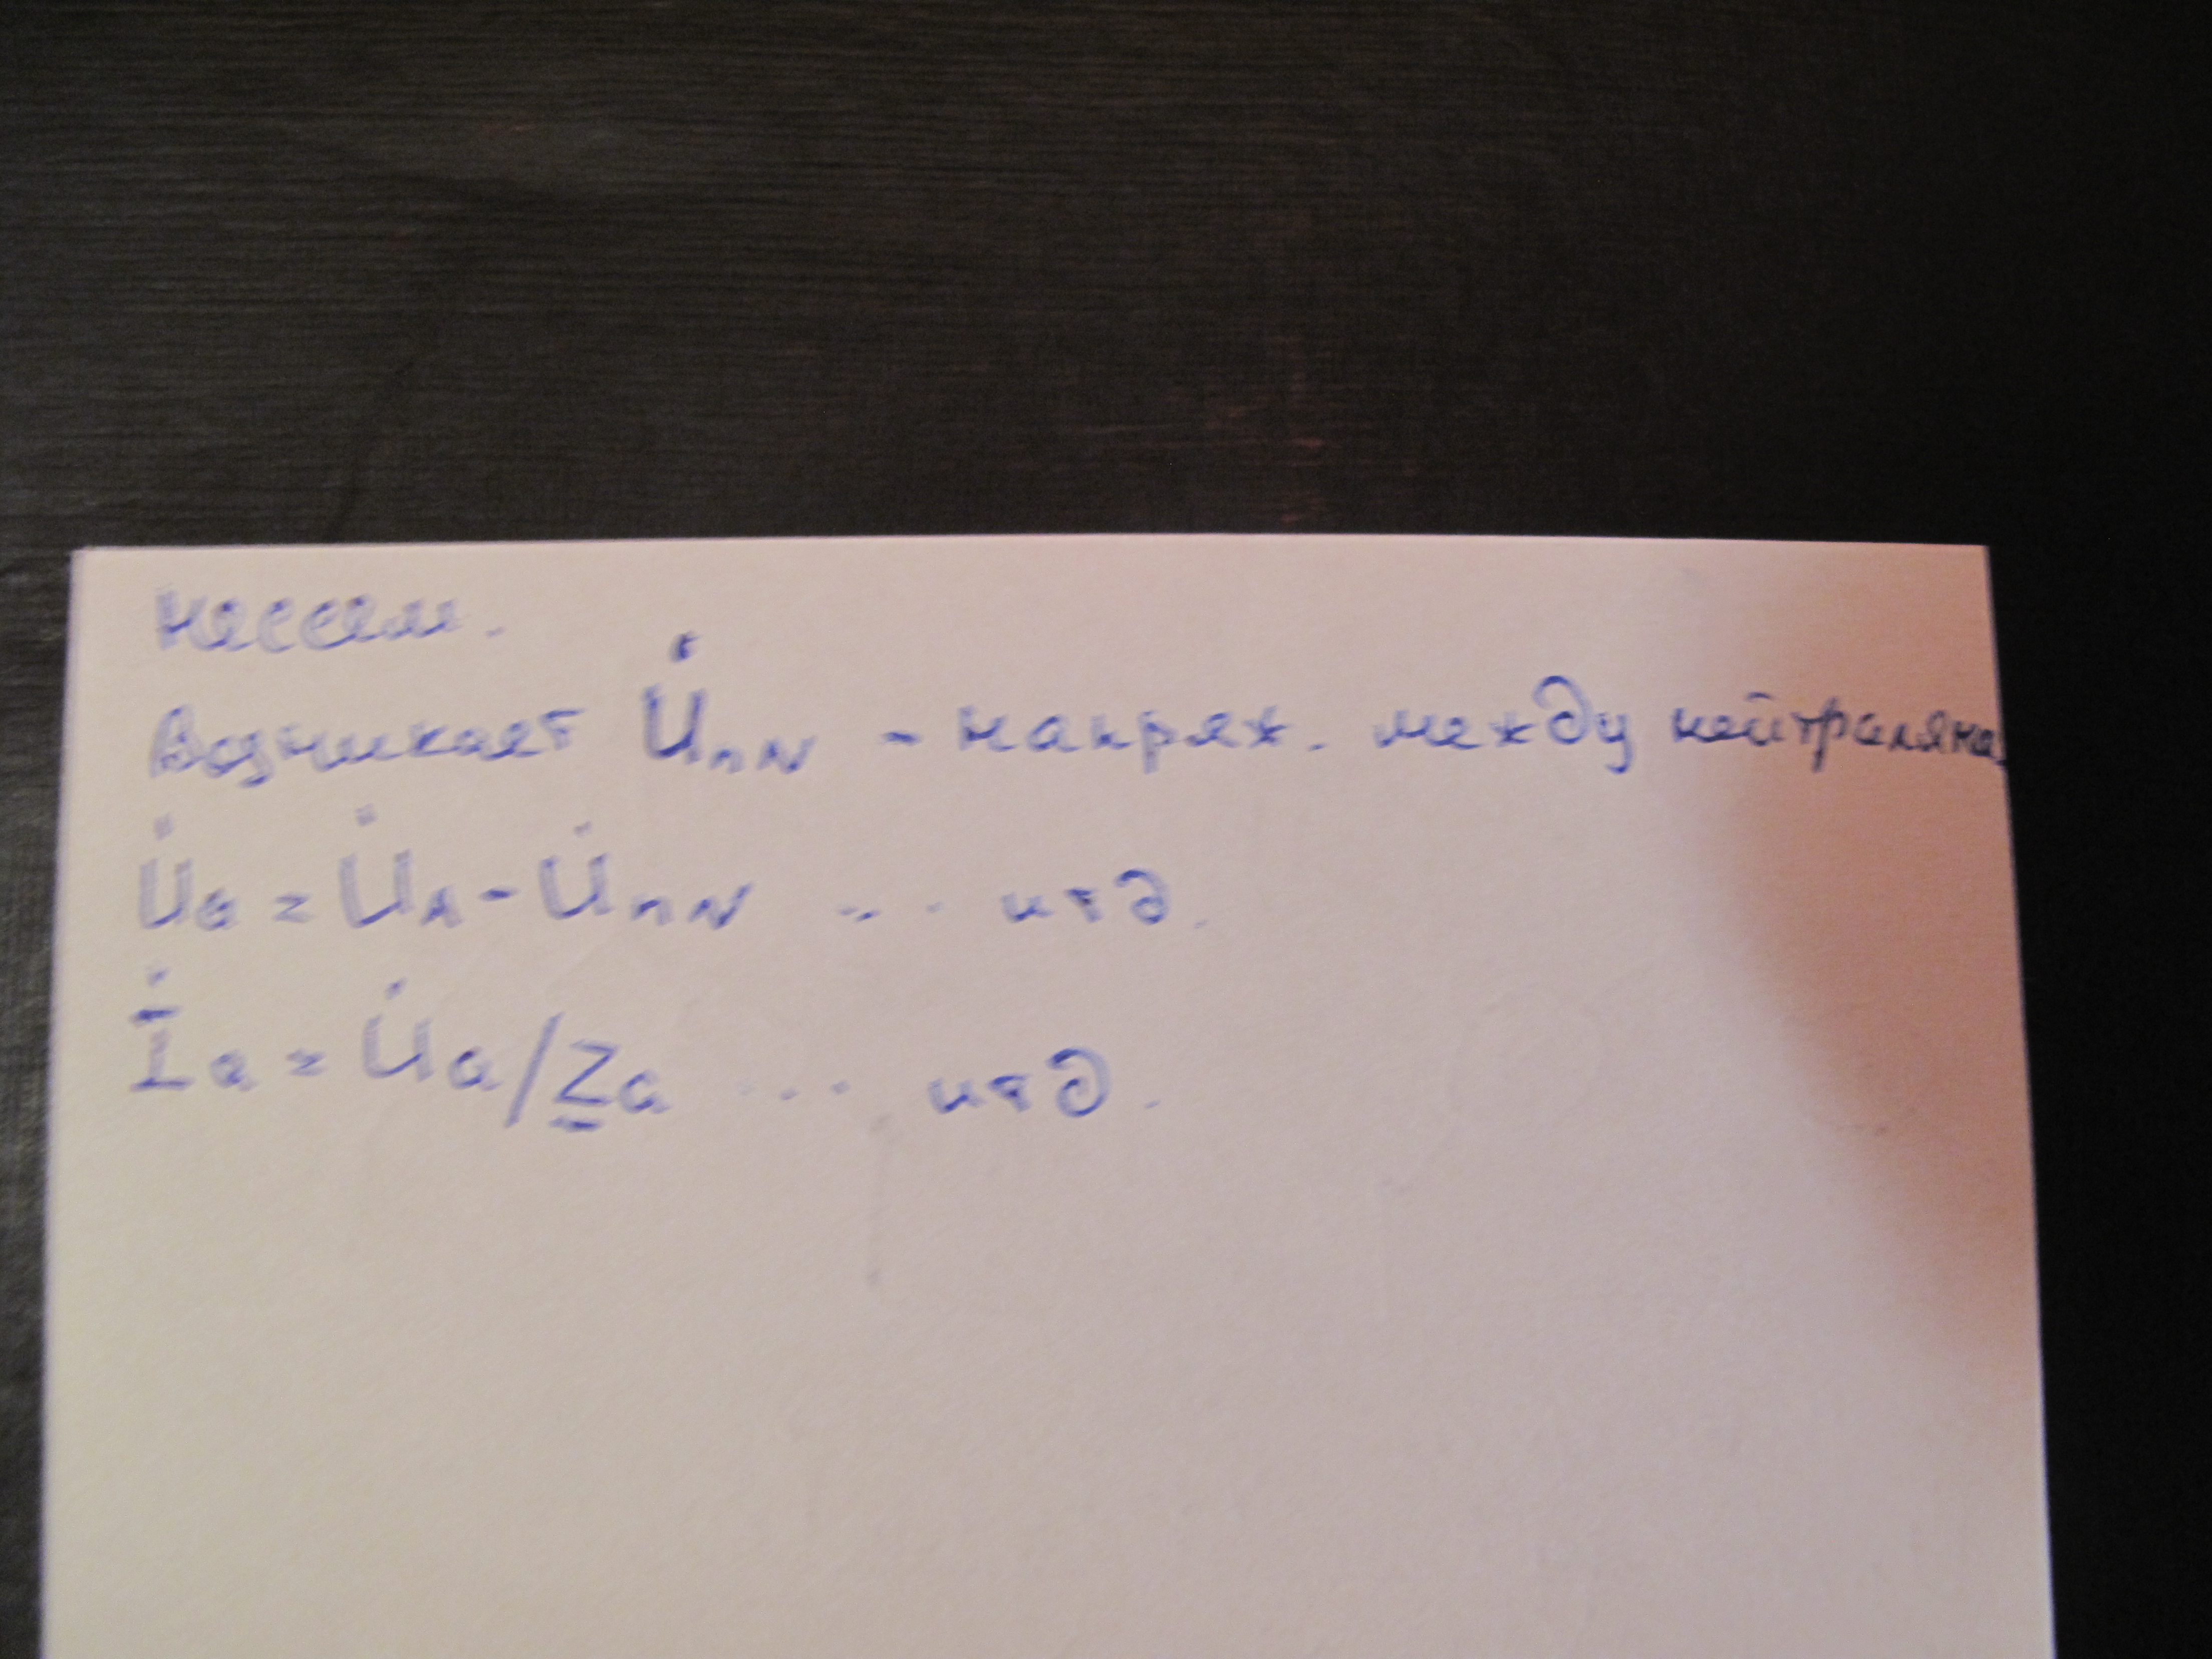 Нессим.
Возникает U̇nN - напряж. между нейтралями
U̇a = U̇A - U̇nN ... итд.
İa = U̇a/Z̲a ... итд.